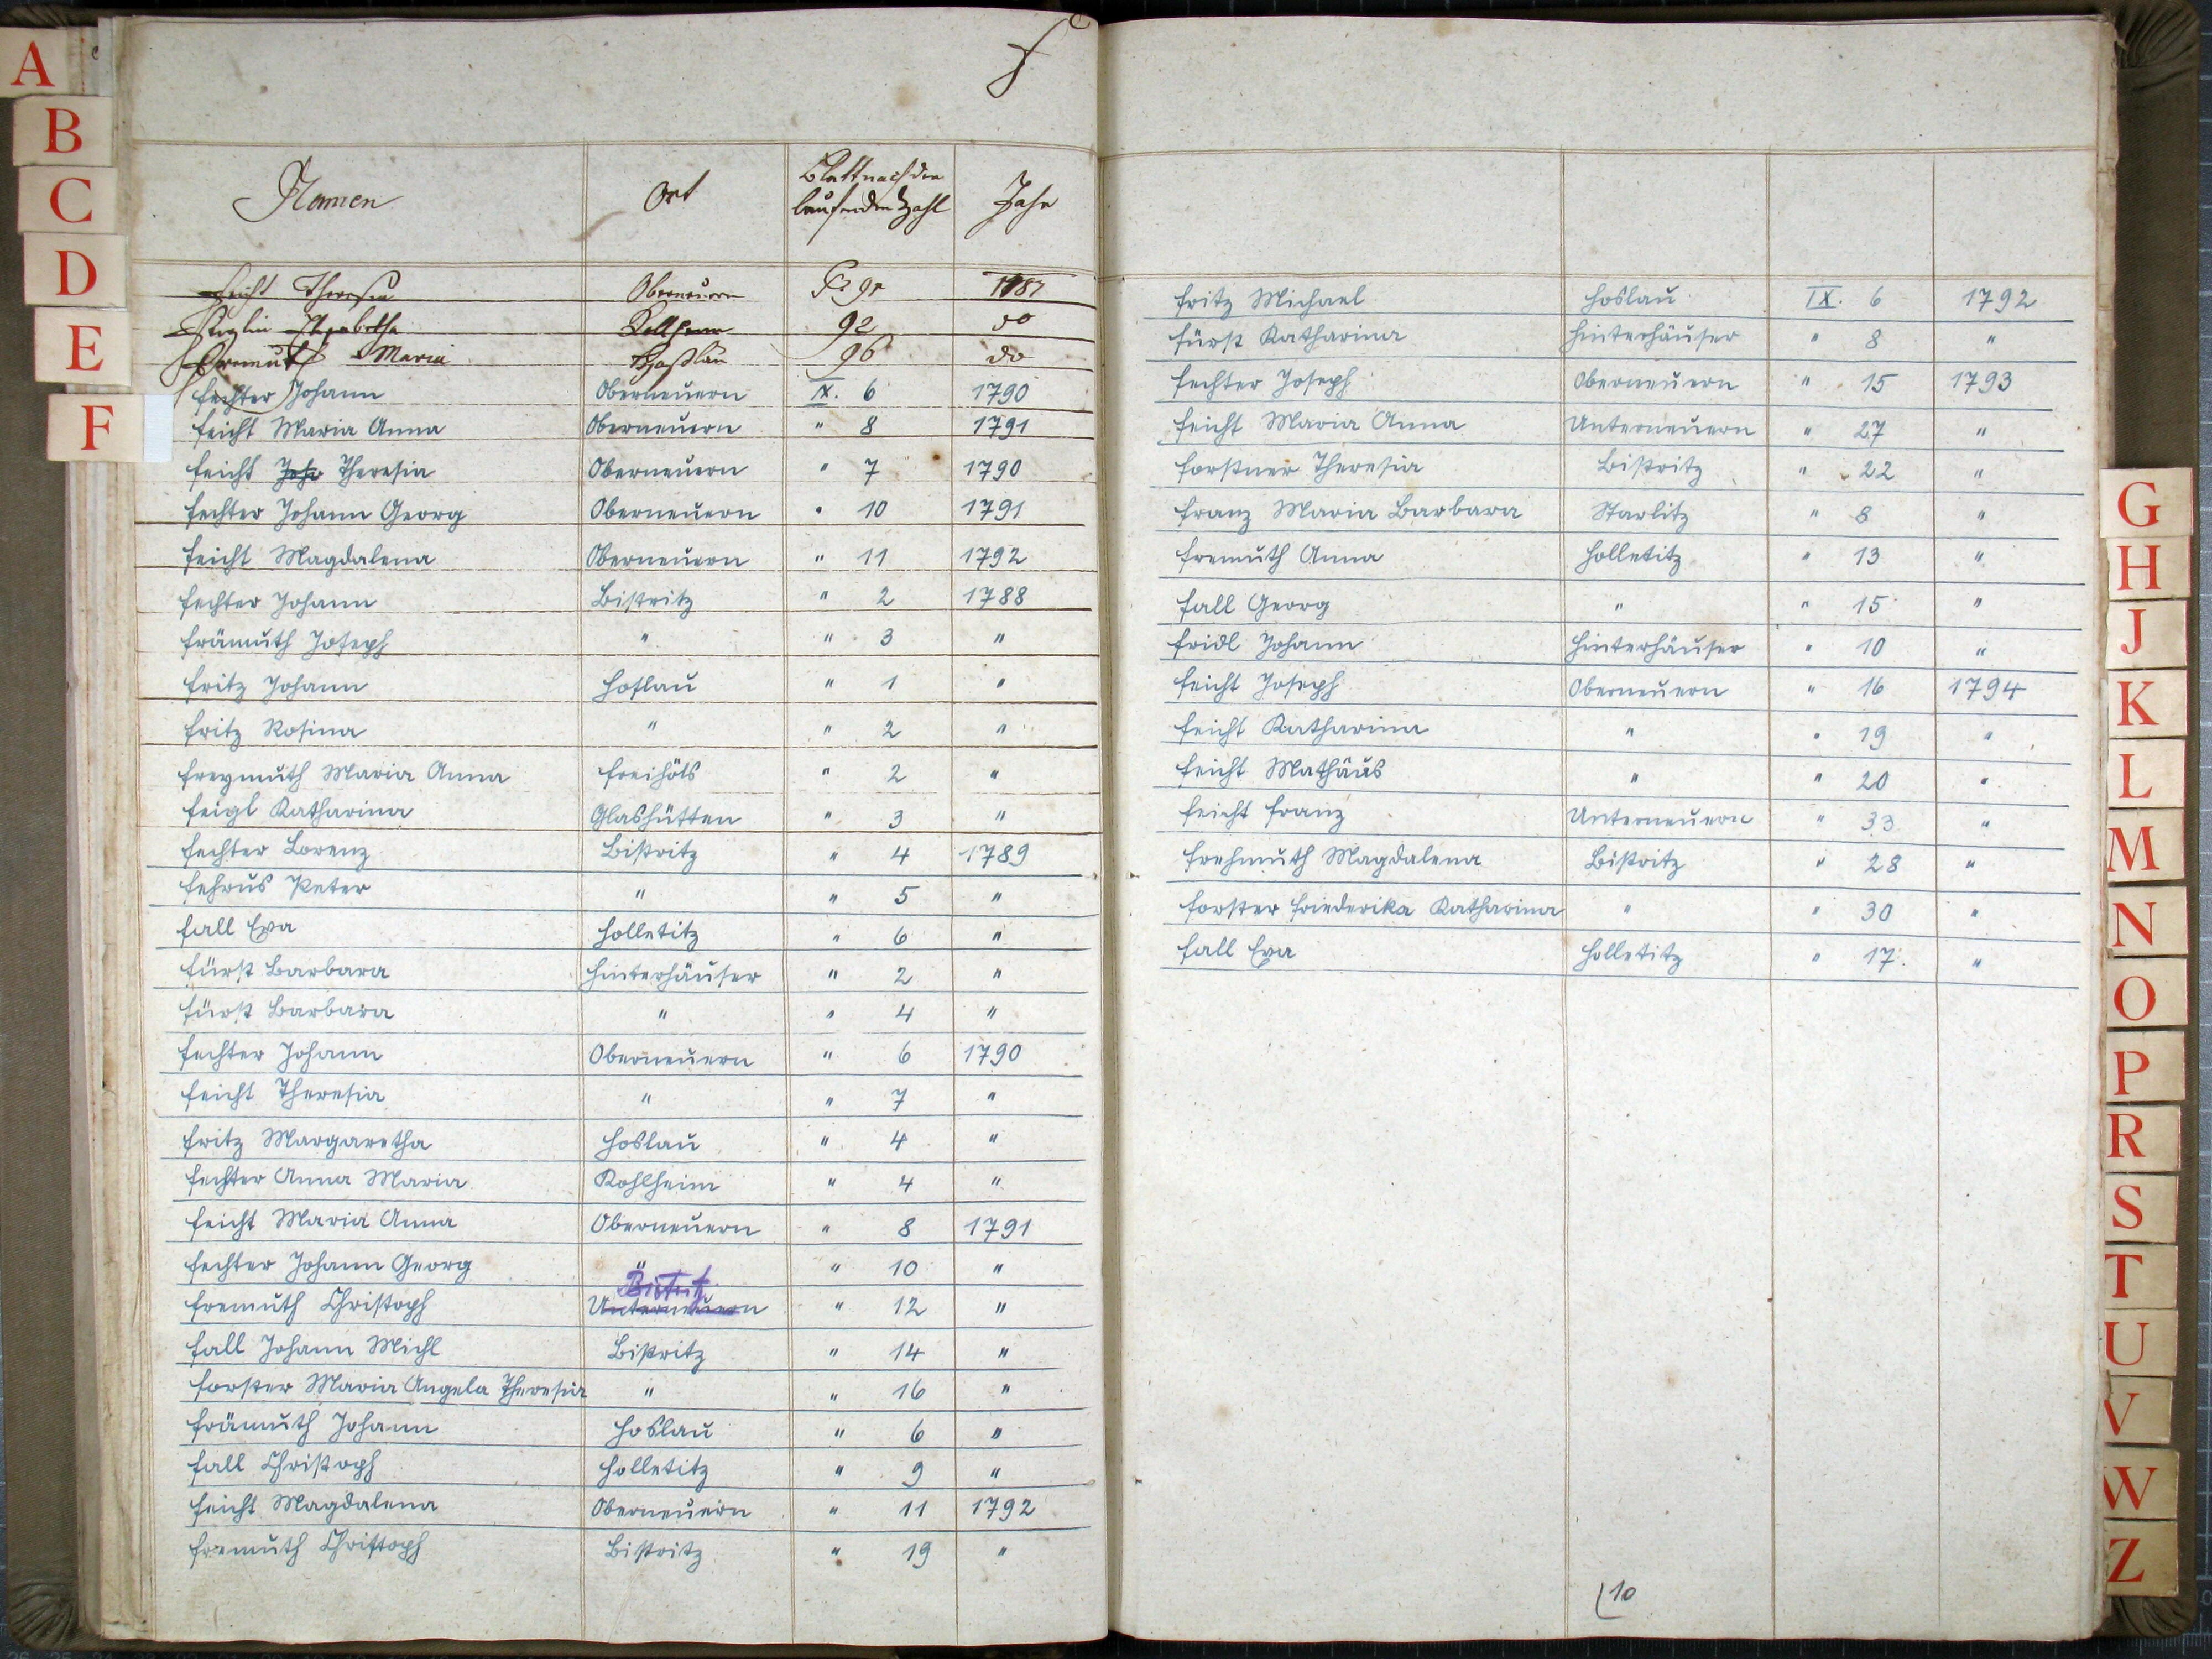 A
B
C
D
E
F
F
Namen Ort Blatt nach der laufenden Zahl Jahr
Feicht Theresia Oberneuern 1787
92 do
Maria Hoßlau 96 do
Fechter Johann Oberneuern IX. 6 1790
Feicht Maria Anna Oberneuern " 8 1791
Feicht Joh Theresia Oberneuern " 7 1790
Fechter Johann Georg Oberneuern " 10 1791
Feicht Magdalena Oberneuern " 11 1792
Fechter Johann Bistritz " 2 1788
Främuth Joseph " " 3 "
Fritz Johann Hoslau " 1 "
Fritz Rosina " " 2 "
Freymuth Maria Anna Freihöls " 2 "
Feigl Katharina Glashütten " 3 "
Fechter Lorenz Bistritz " 4 1789
Fehrus Peter " " 5 "
Fall Eva Holletitz " 6 "
Fürst Barbara Hinterhäuser " 2 "
Fürst Barbara " " 4 "
Fechter Johann Oberneuern " 6 1790
Feicht Theresia " " 7 "
Fritz Margaretha Hoslau " 4 "
Fechter Anna Maria Kohlheim " 4 "
Feicht Maria Anna Oberneuern " 8 1791
Fechter Johann Georg " " 10 "
Bistritz
Fremuth Christoph Unterneuern " 12 "
Fall Johann Michl Bistritz " 14 "
Forster Maria Angela Theresia " " 16 "
Främuth Johann Hoslau " 6 "
Fall Christoph Holletitz " 9 "
Feicht Magdalena Oberneuern " 11 1792
Fremuth Christoph Bistritz " 19 "
Fritz Michael Hoslau IX. 6 1792
Fürst Katharina Hinterhäuser " 8 "
Fechter Joseph Oberneuern " 15 1793
Feicht Maria Anna Unterneuern " 27 "
Forstner Theresia Bistritz " 22 "
Franz Maria Barbara Starlitz " 8 "
Fremuth Anna Holletitz " 13 "
Fall Georg " " 15 "
Fridl Johann Hinterhäuser " 10 "
Feicht Joseph Oberneuern " 16 1794
Feicht Katharina " " 19 "
Feicht Mathäus " " 20 "
Feicht Franz Unterneuern " 33 "
Frehmuth Magdalena Bistritz " 28 "
Forster Friederika Katharina " " 30 "
Fall Eva Holletitz " 17 "
10
G
H
J
K
L
M
N
O
P
R
S
T
U
V
W
Z